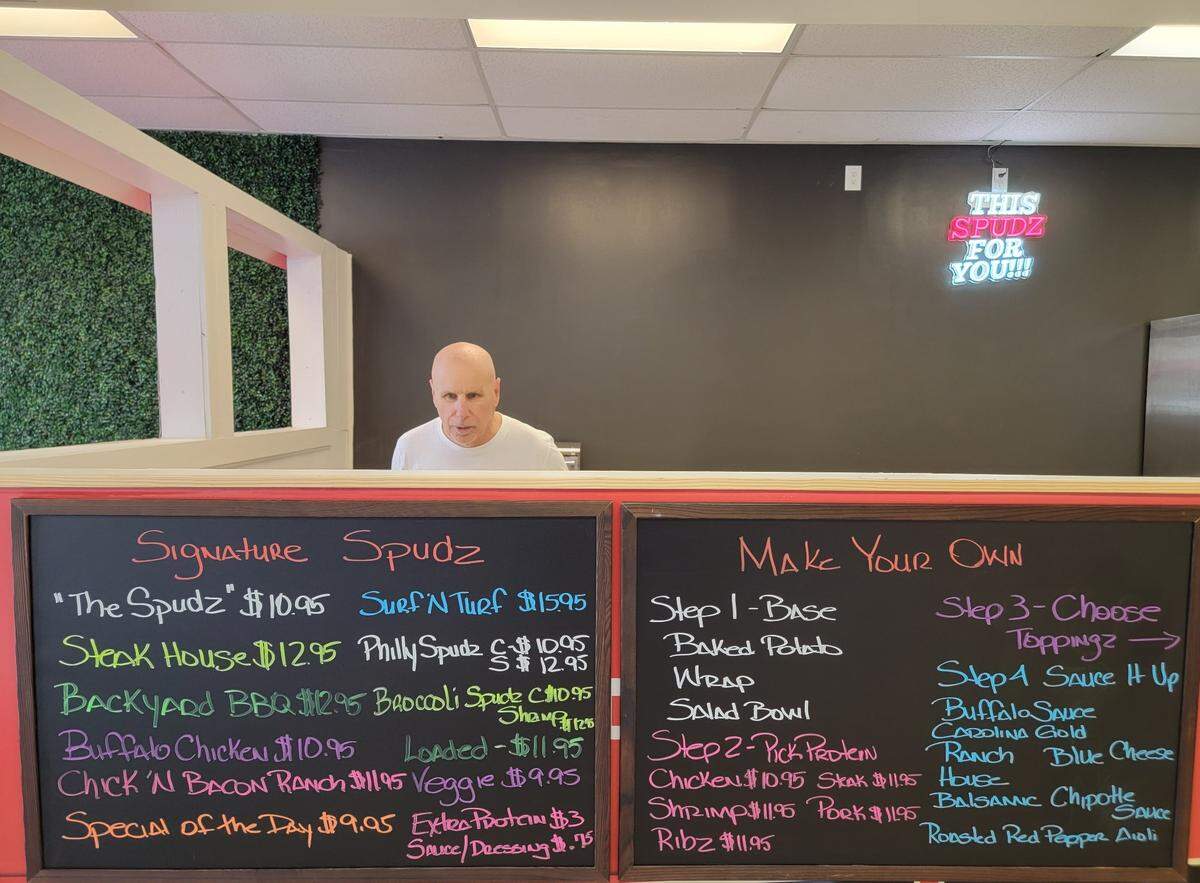 THIS
SPUDZ
FOR
YOU!!!
Signature Spudz
"The Spudz" $10.95
Surf 'N Turf $15.95
Steak House $12.95
Philly Spudz C-$10.95
S $12.95
Backyard BBQ $12.95
Broccoli Spudz C$10.95
Shrimp
Buffalo Chicken $10.95
Loaded - $11.95
Chick 'N Bacon Ranch $11.95
Veggie $9.95
Special of the Day $9.95
Extra Protein $3
Sauce/Dressing $.75
Make Your Own
Step 1 - Base
Baked Potato
Wrap
Salad Bowl
Step 2 - Pick Protein
Chicken $10.95 Steak $11.95
Shrimp $11.95 Pork $11.95
Ribz $11.95
Step 3 - Choose
Toppingz →
Step 4 Sauce It Up
Buffalo Sauce
Carolina Gold
Ranch Blue Cheese
House
Balsamic Chipotle
Sauce
Roasted Red Pepper Aioli